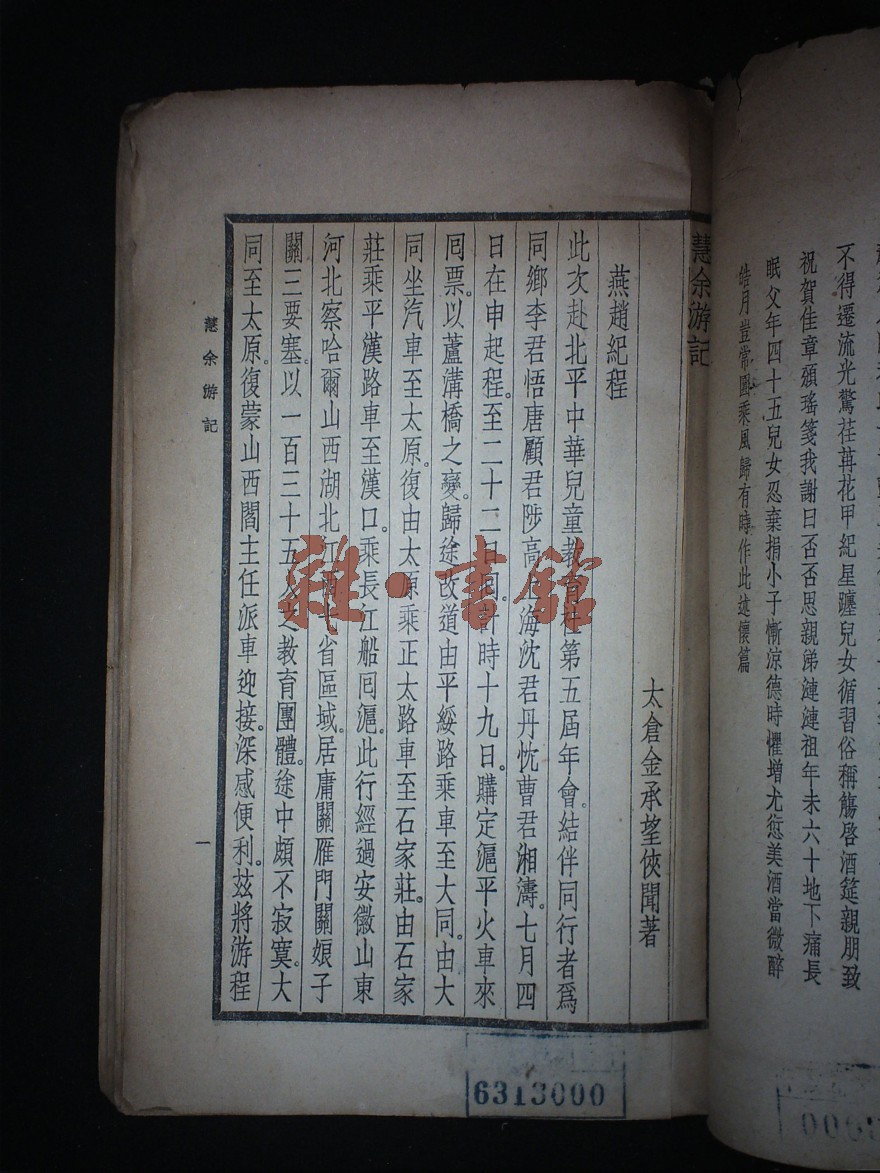 不得遷流光驚荏苒花甲紀星躔兒女循習俗稱觴啓酒筵親朋致
祝賀佳章頒瑤箋我謝曰否否思親涕漣漣祖年未六十地下痛長
眠父年四十五兒女忍棄捐小子慚涼德時懼增尤愆美酒當微醉
皓月豈常圓乘風歸有時作此述懷篇
慧余游記
太倉金承望俠聞著
燕趙紀程
此次赴北平中華兒童教育社第五屆年會。結伴同行者爲
同鄉李君悟唐顧君陟高 海沈君丹忱曹君湘濤。七月四
日在申起程。至二十二日囘。計時十九日。購定滬平火車來
囘票。以蘆溝橋之變。歸途改道由平綏路乘車至大同。由大
同坐汽車至太原。復由太原乘正太路車至石家莊。由石家
莊乘平漢路車至漢口。乘長江船囘滬。此行經過安徽山東
河北察哈爾山西湖北江 省區域。居庸關雁門關娘子
關三要塞。以一百三十五人之教育團體。途中頗不寂寞。大
同至太原。復蒙山西閻主任派車迎接。深感便利。茲將游程
慧余游記
一
雜·書館
6313000